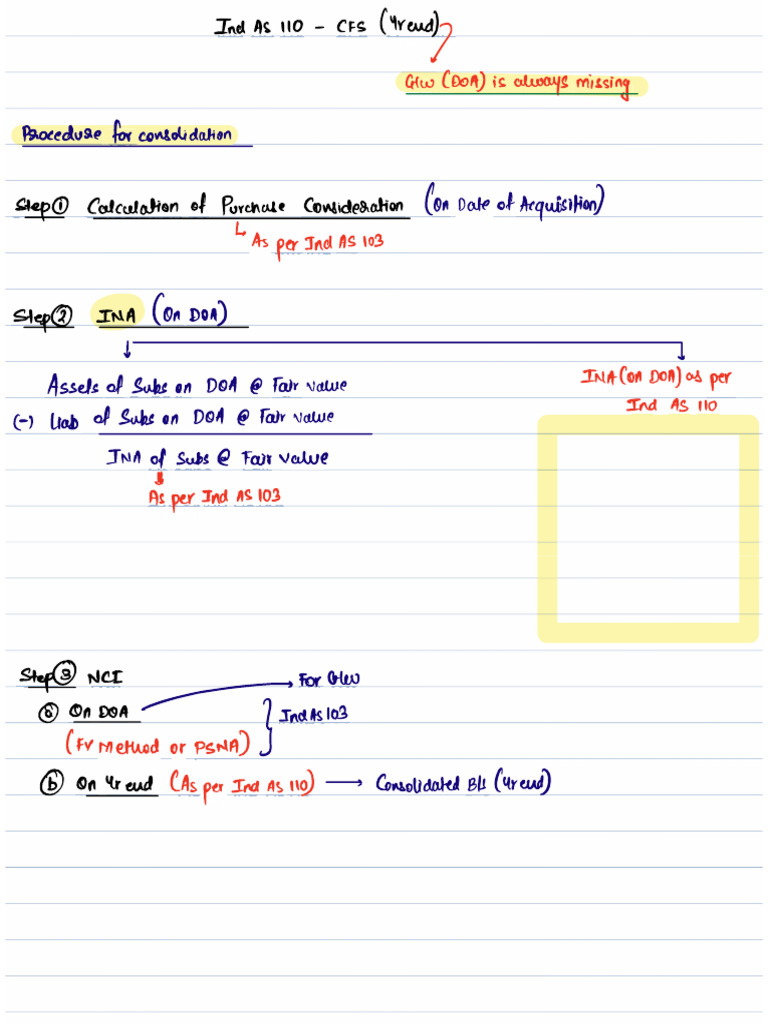 Ind AS 110 - CFS (Yrend)
G/w (DOA) is always missing
Procedure for consolidation
Step ① Calculation of Purchase Consideration (On Date of Acquisition)
As per Ind AS 103
Step ② INA (On DOA)
Assets of Subs on DOA @ Fair value
(-) Liab of Subs on DOA @ Fair value
INA of Subs @ Fair value
As per Ind AS 103
INA (on DOA) as per
Ind AS 110
Step ③ NCI
For G/w
ⓐ On DOA
Ind As 103
(FV Method or PSNA)
ⓑ On Yrend (As per Ind AS 110) → Consolidated B/s (Yrend)